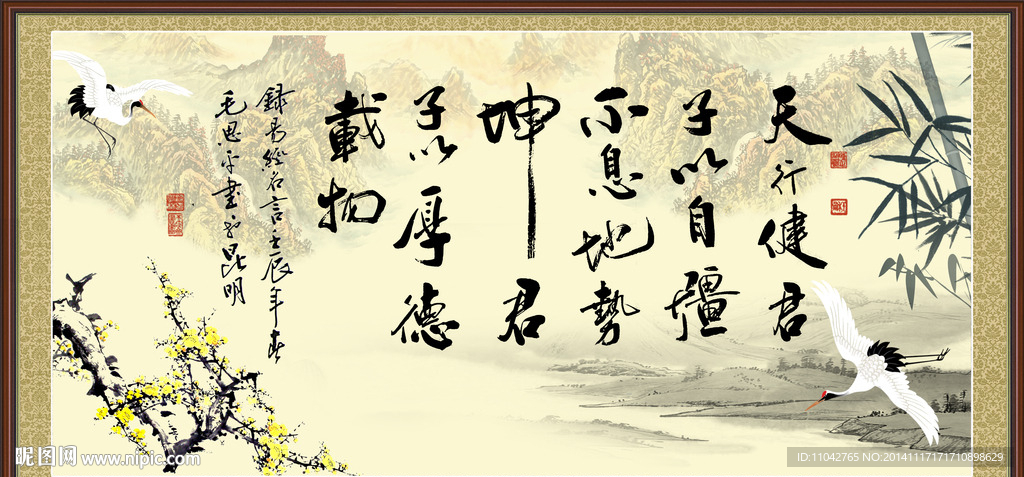 天行健君
子以自疆
不息地勢
坤君
子以厚德
載物
錄易經名言壬辰年春
毛思平書於昆明
昵图网 www.nipic.com
ID:11042765 NO:20141117171710898629